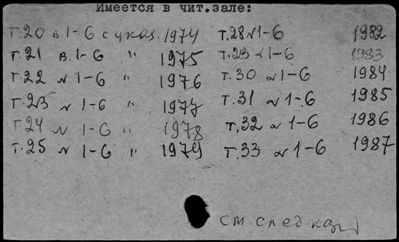 Имеется в чит.зале:
т.20 в 1-6 с указ. 1974 т.28 N 1-6 1982
т.21 в. 1-6 " 1975 т.29 N 1-6 1983
т.22 N 1-6 " 1976 т.30 N 1-6 1984
т.23 N 1-6 " 1977 т.31 N 1-6 1985
т.24 N 1-6 " 1978 т.32 N 1-6 1986
т.25 N 1-6 " 1979 т.33 N 1-6 1987
см. след.